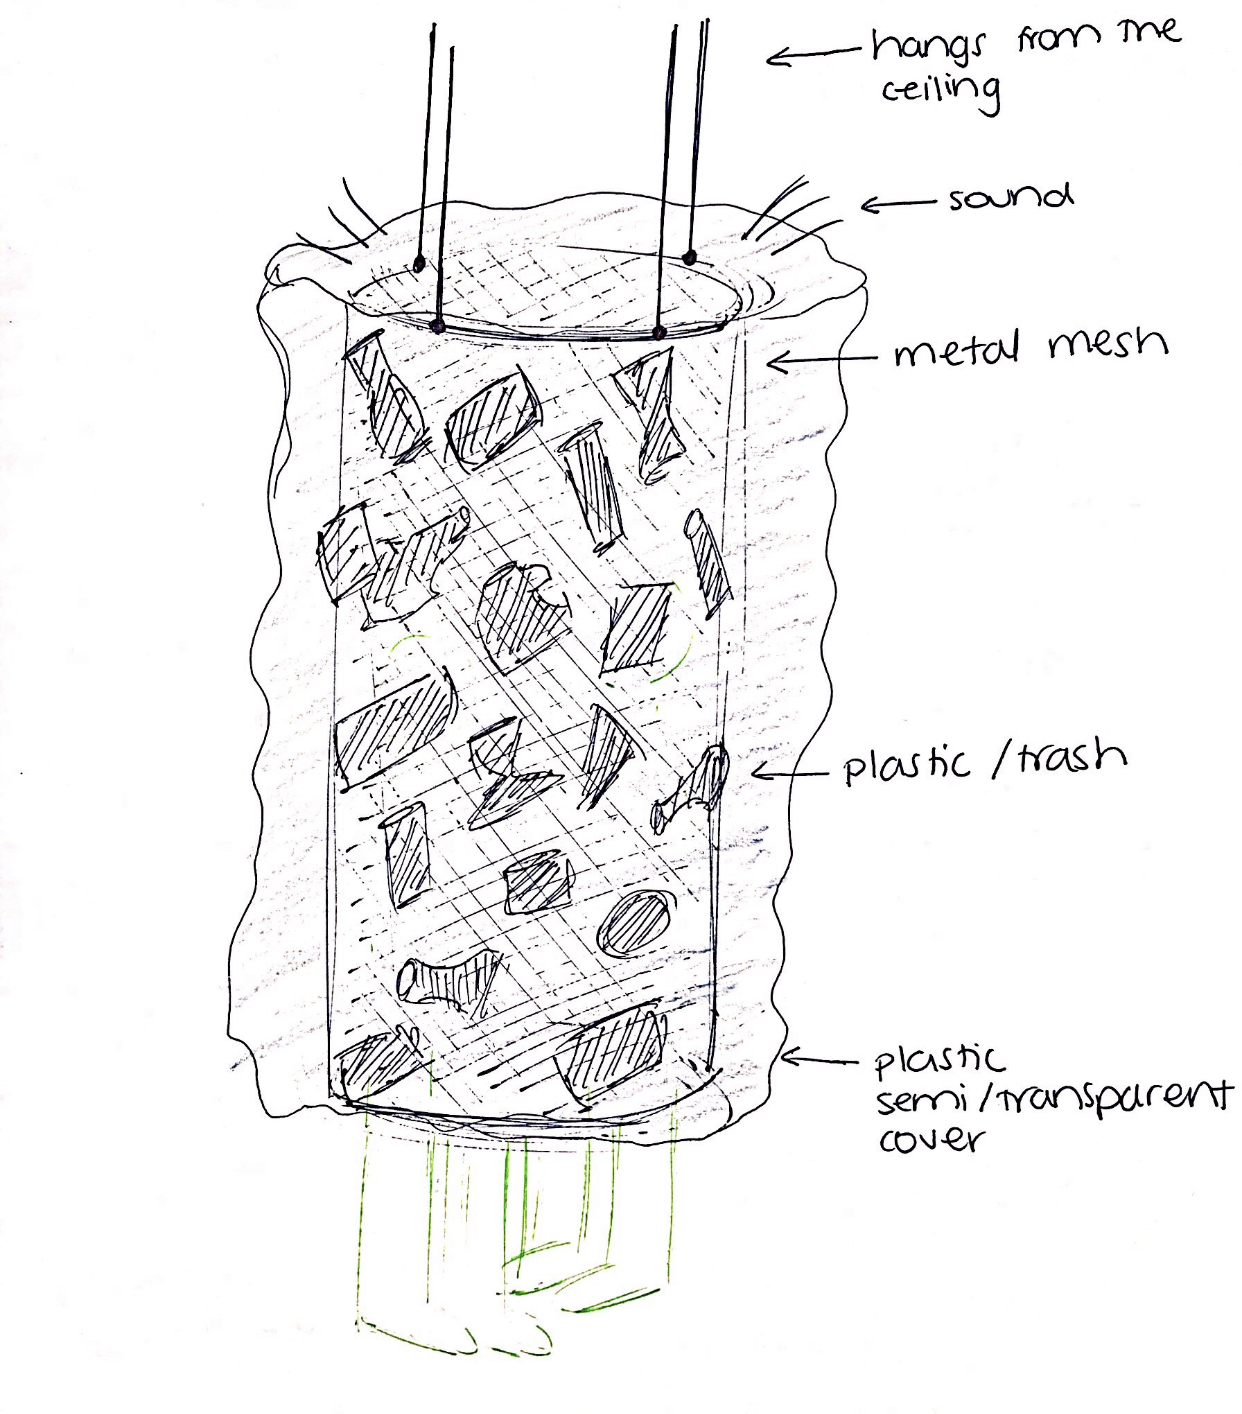 hangs from the
ceiling
sound
metal mesh
plastic / trash
plastic
semi/transparent
cover